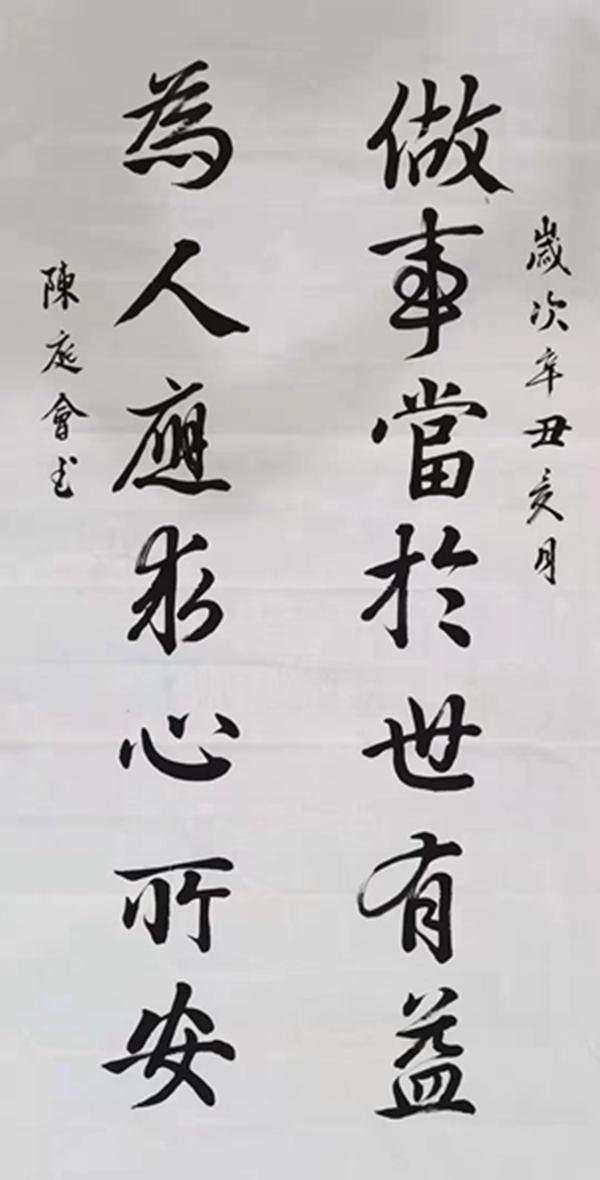 歲次辛丑亥月
做事當於世有益
為人應求心所安
陳庭會書